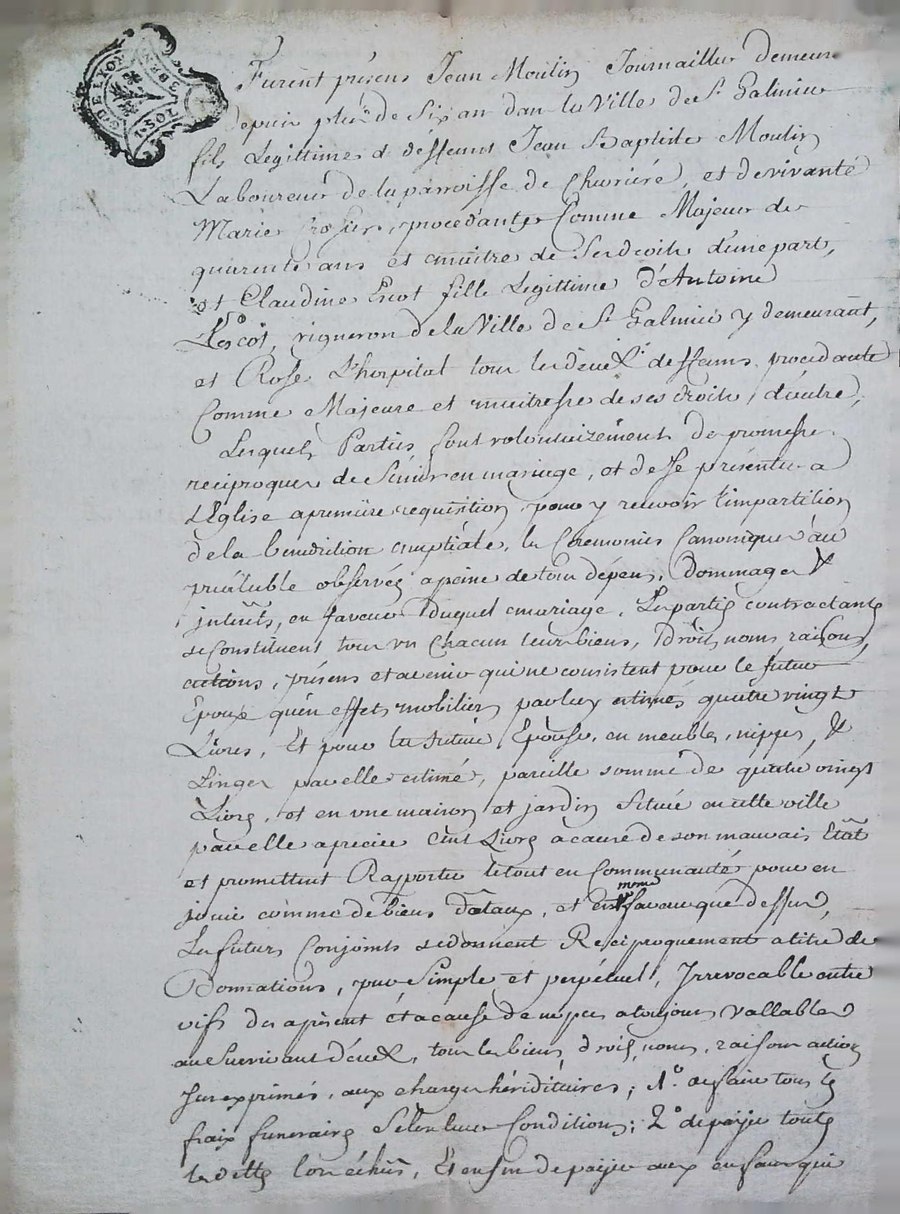 G. DE LYON
1.SOL
Furent présens Jean Moulin Journaillier demeur
depuis plus de Six an dans la Ville de St Galmier
fils Legittime d déffeunt Jean Baptiste Moulin
Laboureur de la parroisse de Chevriéré, et de vivante
Marie procedante Comme Majeur de
quarente ans et maitre de Ses droits d'une part,
et Claudine Escot fille Legittime d'Antoine
Lescot, vigneron de la Ville de St Galmier y demeurant,
et Rose L'hospital tous les deux deffeuns, procedante
Comme Majeure et maitresse de ses droits, d'autre,
Lesquels Parties font volontairement de promesse
reciproques de S'unir en mariage, et de se présenter a
L'Eglise a premiere requisition pour y recevoir L'impartition
de la benediction nuptiale, les Ceremonies Canoniques au
prealable observés a peine de tous dépens, Dommages &
interets, en faveur Duquel mariage, Les parties contractants
se Constituent tous un Chacun leurs biens, Droits, noms, raisons,
actions, présens et avenir qui ne consistent pour le futur
Epoux qu'en effets mobiliers par luy estimés quatre vingt
Livres, Et pour la future Epouse, en meubles, nippes, &
Linges par elle estimé, pareille somme de quatre vingt
Livres, et en une maison et jardin Située en cette ville
par elle apreciée Cent Livres a cause de son mauvais Etat
et promettent Rapporter le tout en Communauté pour en
jouir comme de biens Dotaux, et en meme faveur que dessus,
Les futurs Conjoints se donnent Resciproquement a titre de
Donnations, pure Simple et perpétuel, Irrevocable entre
vifs des a présent et a cause de mort a toujours vallables
au Survivant d'eux, tous les biens, droits, noms, raisons actions
Sus exprimés, aux charges héréditaires; 1°. de faire tous les
fraix funeraires Selon leur Conditions; 2° de payer toutes
les dettes lors échues, Et enfin de payer aux enfans qui